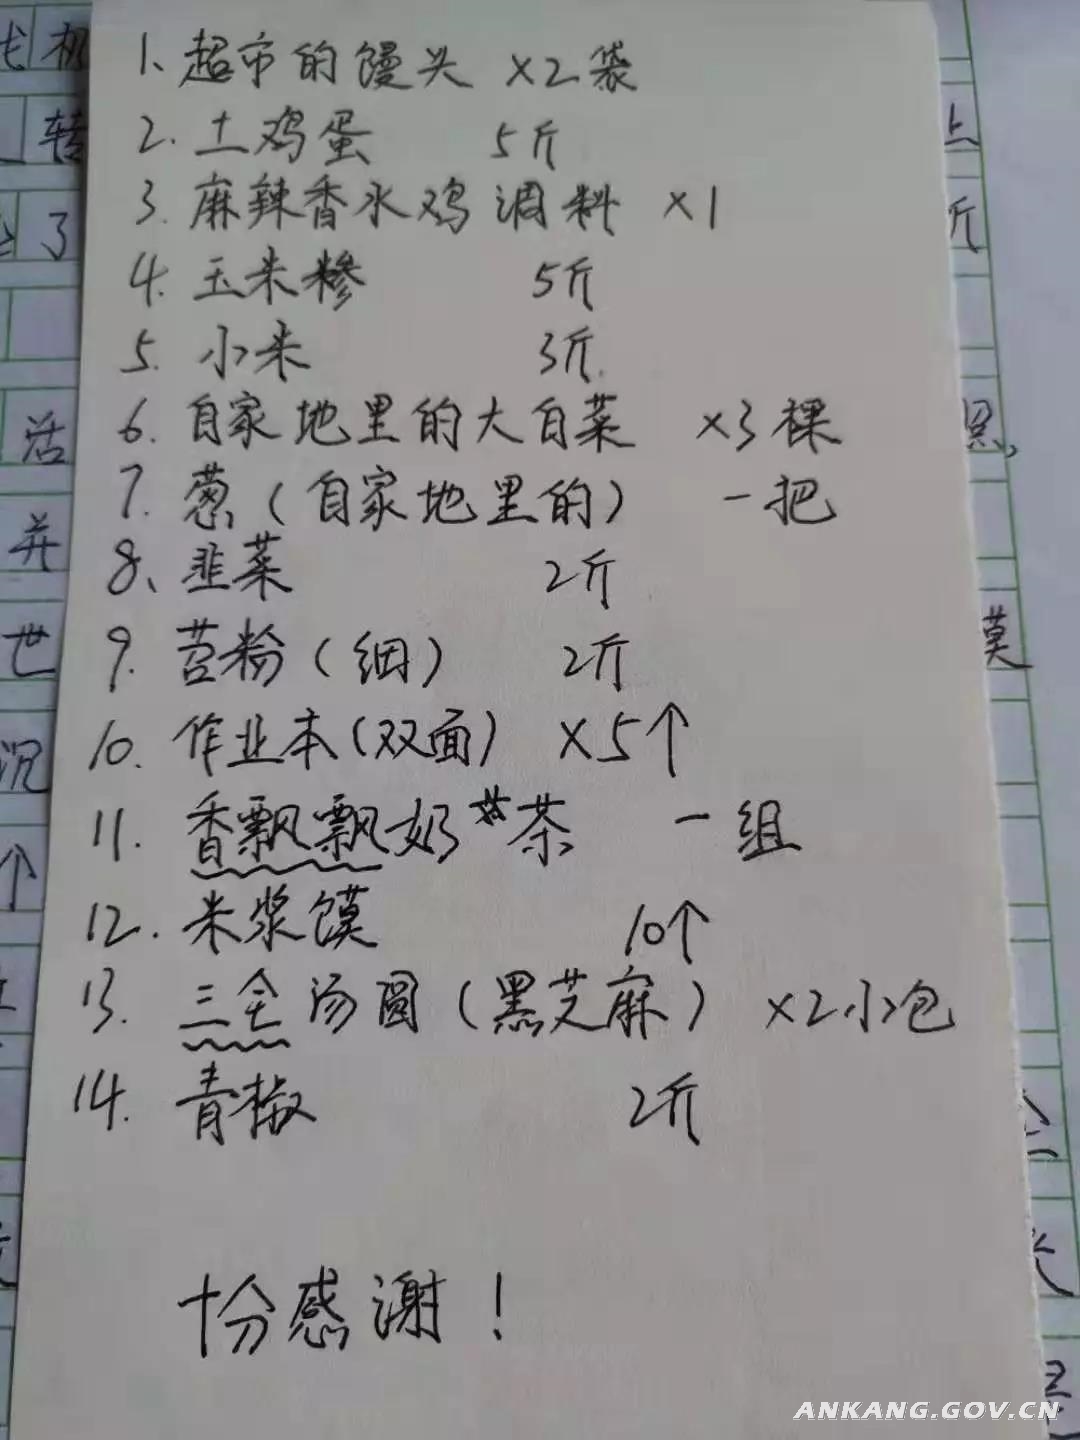 1、超市的馒头 ×2袋
2. 土鸡蛋 5斤
3. 麻辣香水鸡调料 ×1
4. 玉米糁 5斤
5. 小米 3斤.
6. 自家地里的大白菜 ×3棵
7. 葱(自家地里的) 一把
8、韭菜 2斤
9. 苕粉(细) 2斤
10. 作业本(双面) ×5个
11. 香飘飘奶茶 一组
12. 米浆馍 10个
13. 三全汤圆(黑芝麻) ×2小包
14. 青椒 2斤
十分感谢!
ANKANG.GOV.CN